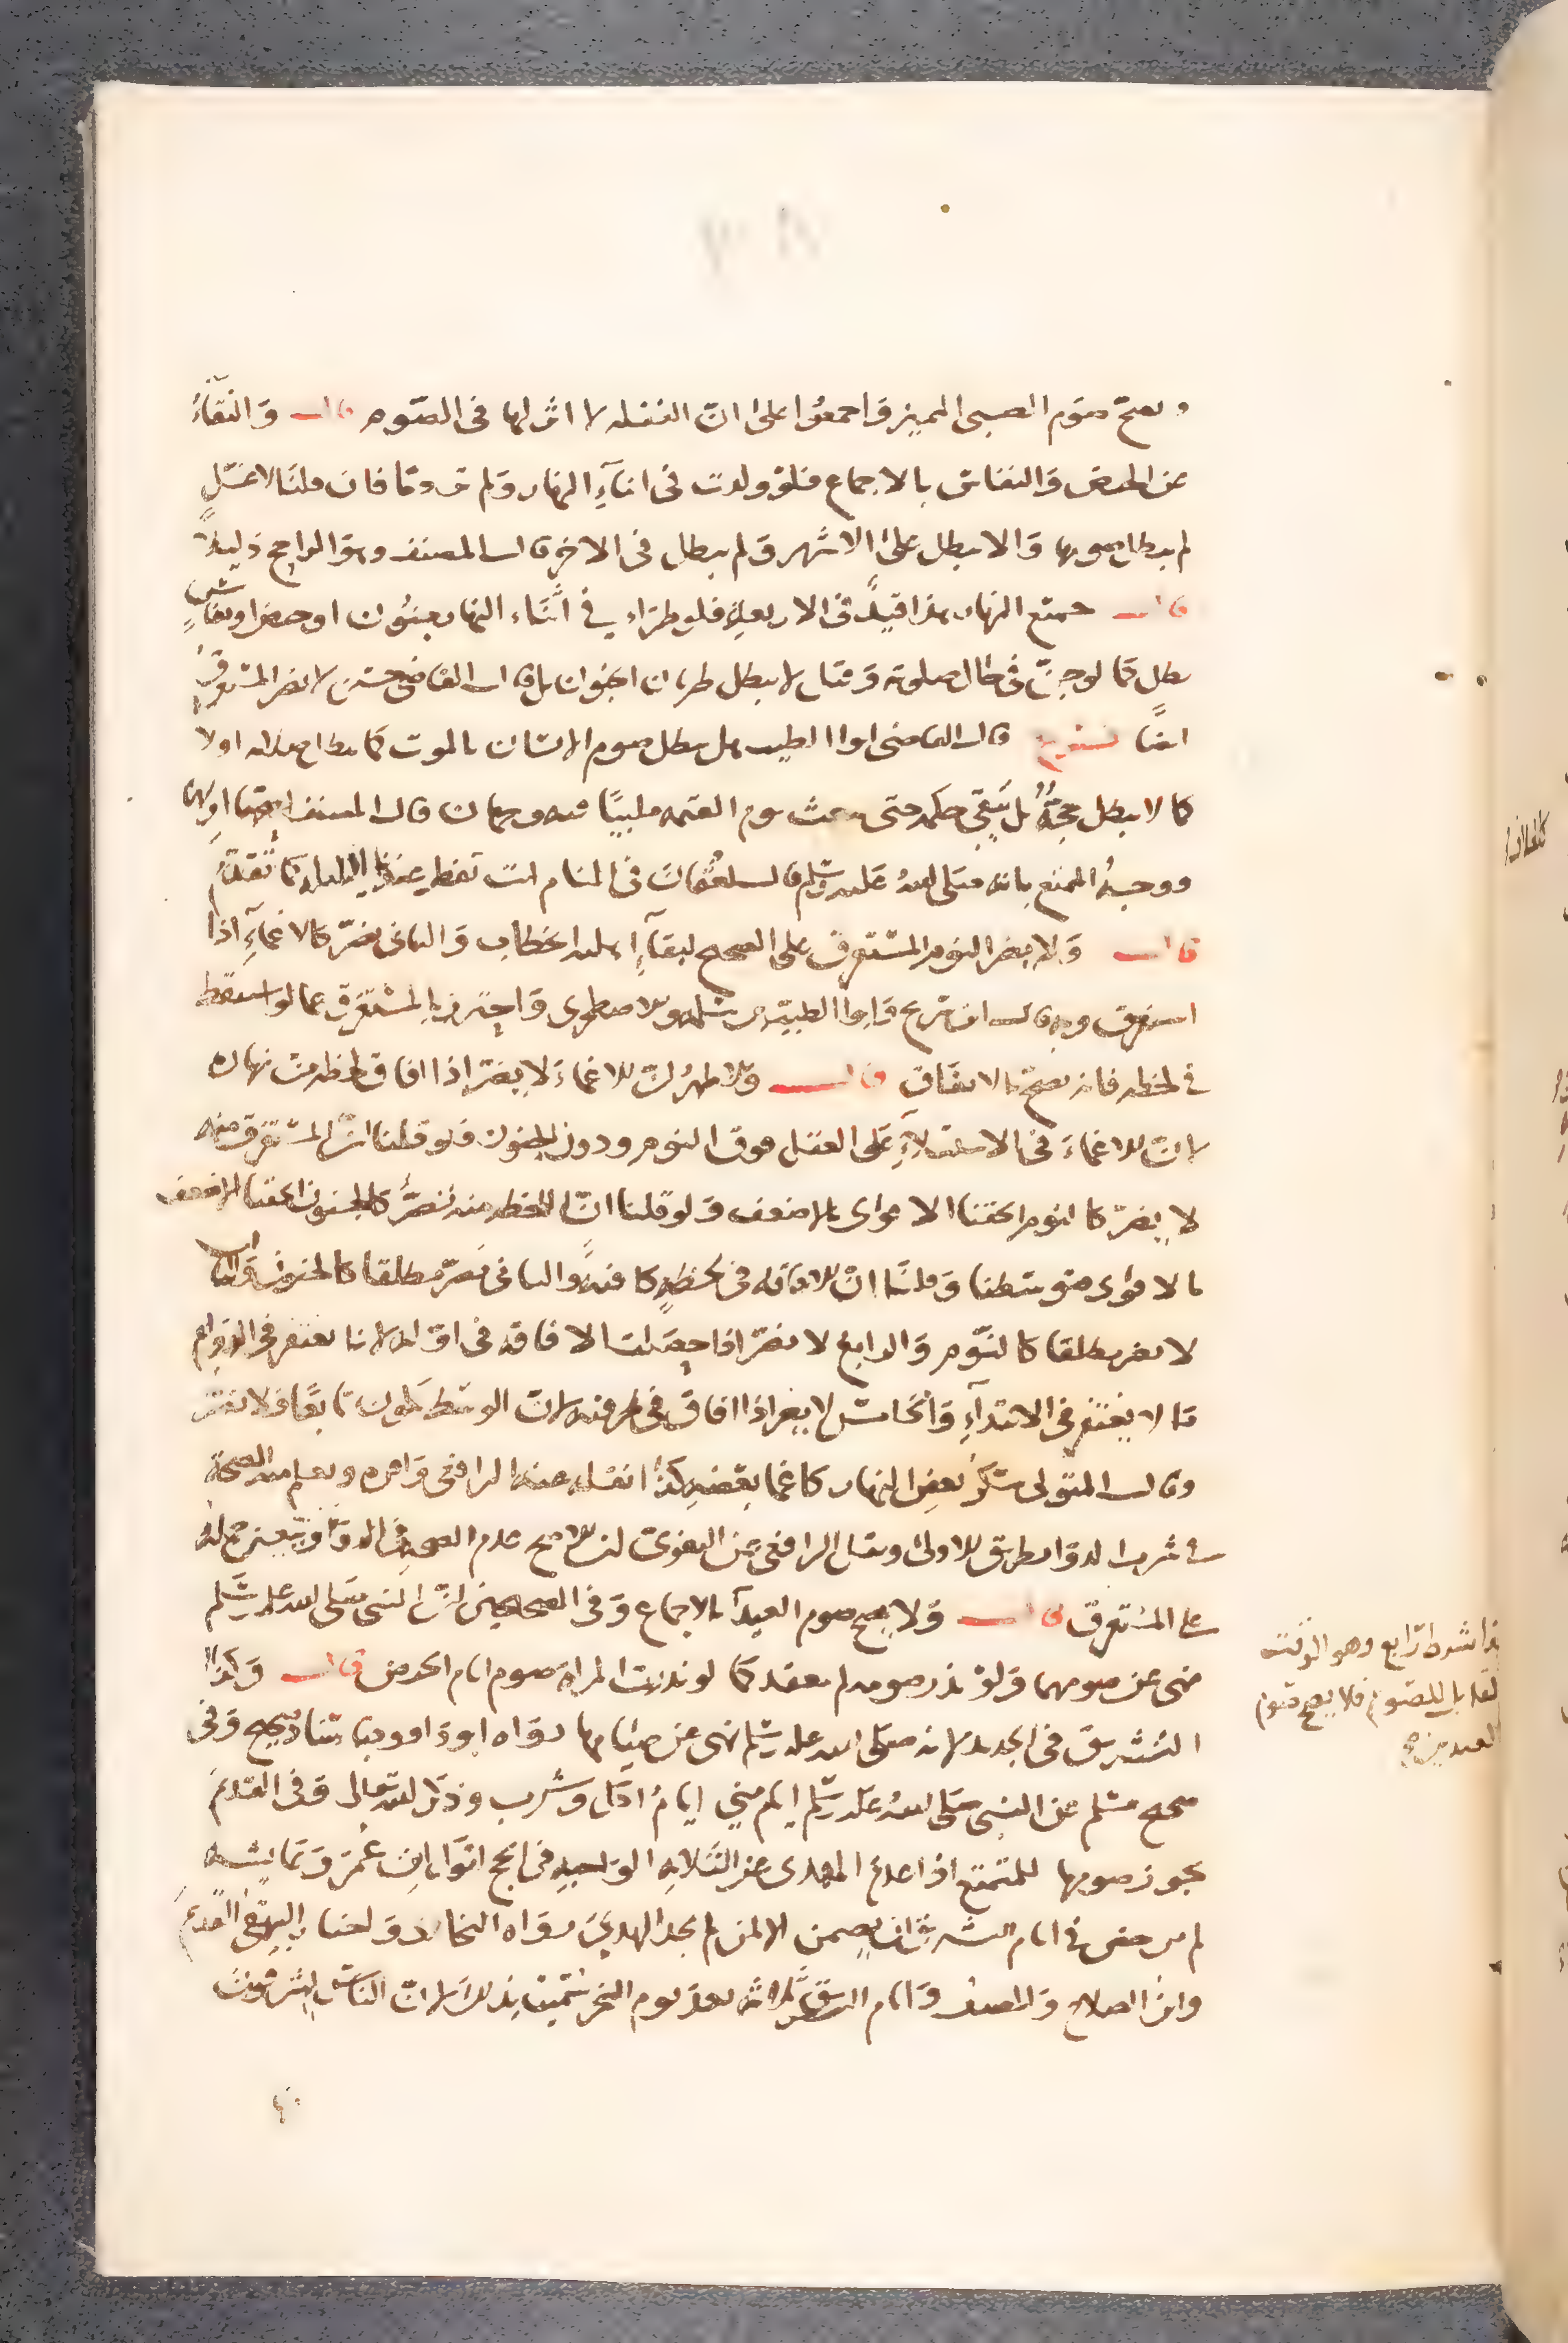 ويصح صوم الصبي المميز وَاجمعُوا على انّ الغفلة لا اثر لها في الصّوم قال وَالنقَآءُ
عن الحيض وَالنفاس بالاجماع فلوْ ولدت في اثنآءِ النهار وَلم تر دمًا فان قلنَا لا غسْلٍ
لم يبطل صومها وَالا بطل علىٰ الاشهر وَلم يبطل في الاخر قال المصنف وهوَ الراجح دَليلًا
قال جميع النهار هذا قيدٌ في الاربعة فلو طرَاء في اثنَاء النهار جنُون او حيض او نفاسٍ
بطل كما لو جنّ في خلال صلوته وَقيل لا يبطل طريان الجنون بل قال القاضي حسَين لا يضر المستغرق
ايضًا تفريع قال القاضي ابوا الطيب هل يبطل صوم الانسان بالموت كما يبطل صلاته اولا
كما لا يبطل حجّهُ بل يَبقي حكمه حتى يبعث يوم القيمة ملبيًا فيه وجهان قال المصنف ارجحهما اولهما
ووجهُ المنع بانه صَلى اللهُ عَليه وسَلم قال لعثمَانَ في المنام انت تفطر عندنا الليلة كما تقدّمَ
قال وَلا يضر النوم المستغرق على الصحيح لبقآءِ اهلية الخطاب وَالثاني يضرّ كالاغمآءِ اذا
استغرق وبه قال ابن سُريج وَابوا الطيّب بن سلمة والاصطخرى وَاحترز بالمستغرق عما لو استيقظ
في لحظه فانه يصحّ بالاتفاق قال والاظهرُ انّ الاغماءَ لا يضرّ اذا افاق لحظة من نهاره
لانّ الاغماءَ في الاستيلآءِ عَلى العقل فوق النوم ودون الجنون فلو قلنا انّ المستغرق منه
لا يضرّ كالنوم الحقنا الاقوى بالاضعف وَلو قلنا انّ اللحظه منه تضرُّ كالجنون الحقنا الاضعف
بالاقوى فتوسَّطنا وَقلنَا انّ الافاقه في لحظةٍ كافيةٌ والثاني يَضرّ مطلقا كالجنون وَالثالث
لا يضر مطلقا كالنّوم وَالرابعُ لا يضرّ اذا حصَلت الافاقه في اوّله لانا نغتفر في الدوَام
مَا لا يغتفر في الابتدآءِ وَالخامسُ لا يضر اذا افاق في طرفيه لانّ الوسَط يَكون تابعًا فلا يضرّ
وقال المتولى سُكرُ بعض النهار كاغما بعْضهِ كذا نقله عنه الرافعى وَاقره ويعلم منه الصحّة
في شرب الدوَا بطريق الاولى ونقل الرافعي عن البغوى ان الاصح عدم الصحة في الدوَا ويتعين حملهُ
على المسْتغرق قال وَلا يصح صوم العيد بالاجماع وَفي الصحيحين انّ النبي صَلى الله عليه وسَلم
نهى عن صومهما وَلوْ نذر صومه لم ينعقد كما لو نذرت المراة صوم ايام الحيض قال وَكذا
التشريق في الجديد لانه صلى الله عليه وسلم نهى عن صيَامها رَوَاه ابودَاوود باسنادٍ صحيح وَفى
صحيح مسْلم عن النبي صَلى اللهُ عَليه وسَلم ايام مِني ايامُ اكل وَشرب وذكر الله تعالى وَفي القديم
يجوز صومها للمتمتع اذا عدمَ الهدى عن الثلاثه الوَاجبة في الحج لقول ابن عُمَرَ وَعَايشة
لم يرخص في ايام التشريق ان يصمن الا لمن لم يجد الهديَ رَوَاه البخارى وَاختار البيهقى القديمَ
وابن الصلاح وَالمصنف وَايام التشريق ثلاثه بعدَ يوم النحر سُمّيت بذلك لانّ الناسَ يشرقون
هذا شرط رَابع وهو الوَقت
القابل للصَّوم فلا يصح صَوم
العيدين